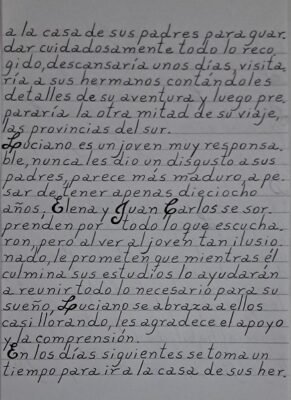 a la casa de sus padres para guar.
dar cuidadosamente todo lo reco.
gido, descansaría unos días, visita.
ría a sus hermanos contándoles
detalles de su aventura y luego pre.
pararía la otra mitad de su viaje,
las provincias del sur.
Luciano es un joven muy responsa.
ble, nunca les dio un disgusto a sus
padres, parece más maduro, a pe.
sar de tener apenas dieciocho
años. Elena y Juan Carlos se sor.
prenden por todo lo que escucha.
ron, pero al ver al joven tan ilusio.
nado, le prometen que mientras él
culmina sus estudios lo ayudarán
a reunir todo lo necesario para su
sueño, Luciano se abraza a ellos
casi llorando, les agradece el apoyo
y la comprensión.
En los días siguientes se toma un
tiempo para ir a la casa de sus her.